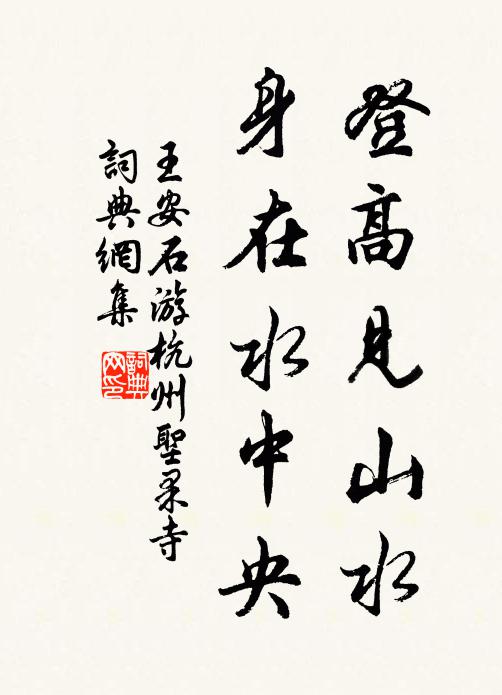 登高見山水
身在水中央
王安石游杭州聖果寺
詞典網集
詞典
网印